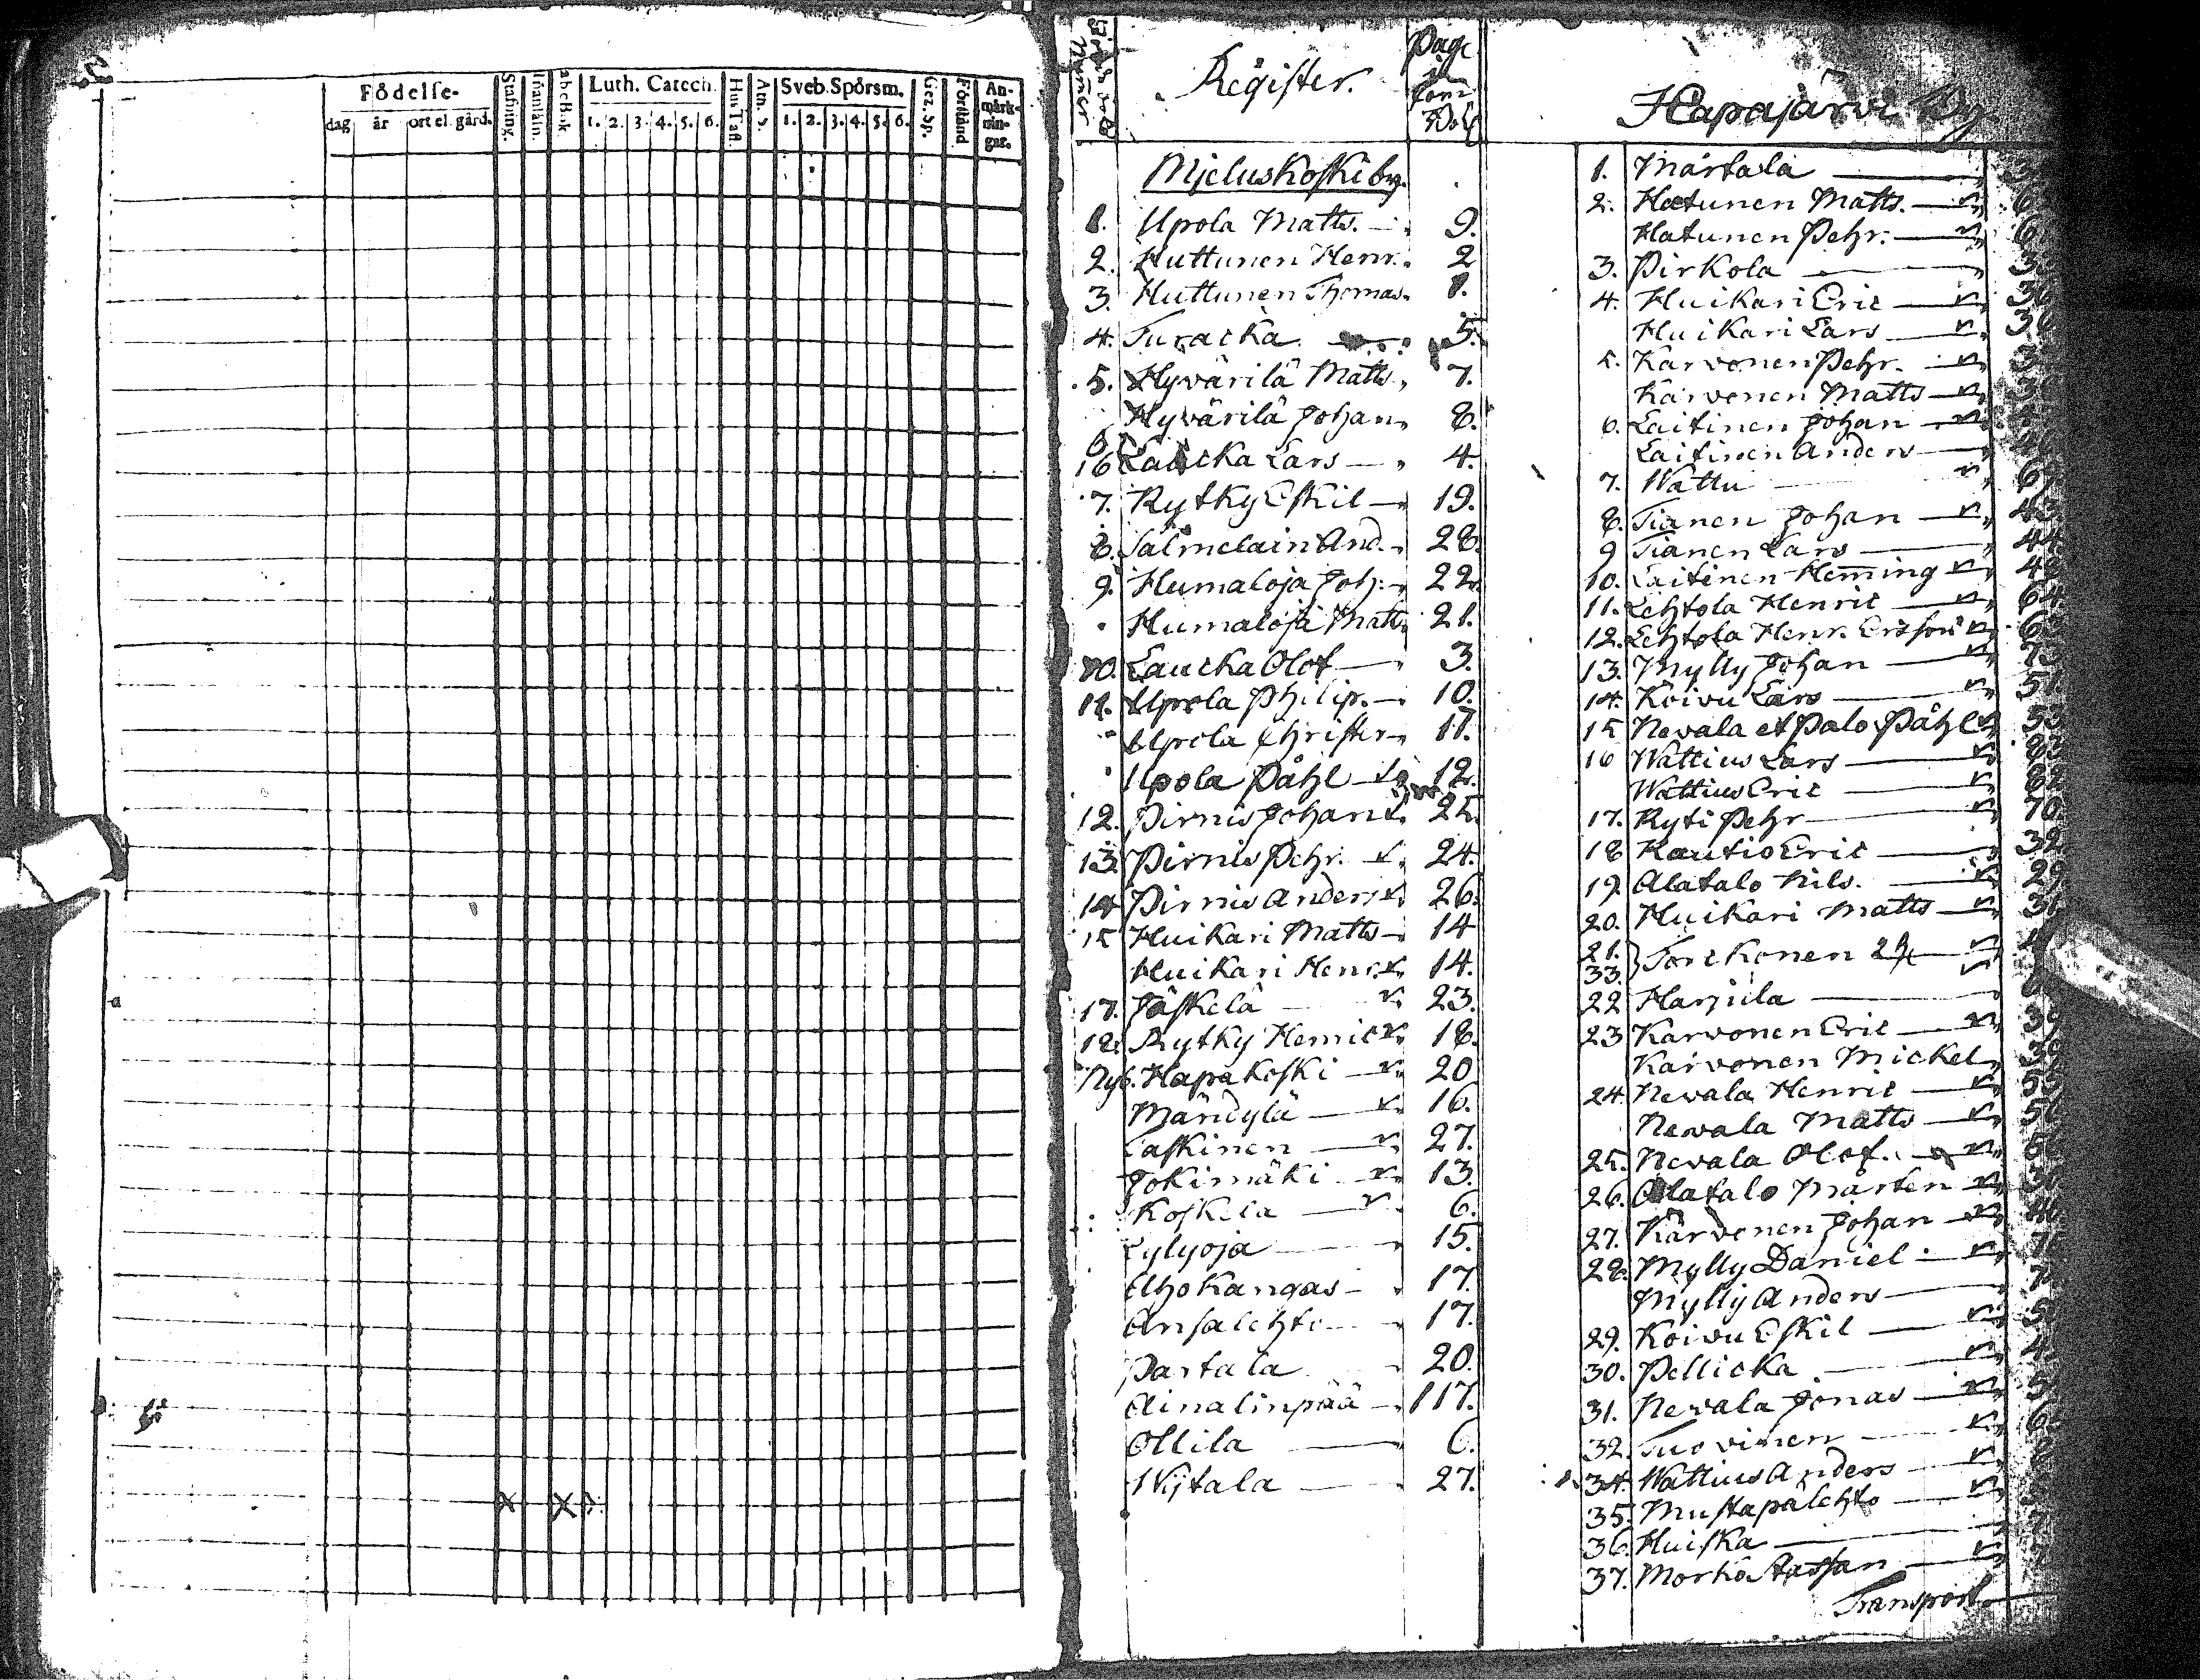 Födelse-
dag år ort el. gård.
Stafning.
Innanläsn.
abcBok
Luth. Catech.
1. 2. 3. 4. 5. 6.
Hus Tafl.
Ath. S.
Sveb. Spörsm.
1. 2. 3. 4. 5. 6.
Gez. Sp.
Förstånd
An-
märk-
nin-
gar.
Numer
Register.
Page
Mieluskoski by.
1. Upola Matts. 9.
2. Huttunen Henr. 2
3. Huttunen Thomas 1.
4. Turacka 5.
5. Hyvärilä Matts 7.
Hyvärilä Johan 8.
6 16 Laucka Lars 4.
7. Rytky Eskil 19.
8. Salmelain And. 28.
9. Humaloja Joh. 22.
Humaloja Matts 21.
10. Laucka Olof 3.
11. Upola Philip. 10.
Upola Christer 11.
Upola Påhl 12.
12. Pirnis Johan 25.
13. Pirnis Pehr. 24.
14 Pirnis Anders 26.
15 Huikari Matts 14
Huikari Henr. 14.
17. Jäskelä 23.
18. Rytky Henric 18.
Nyb. Hapakoski 20
Mändylä 16.
Laskinen 27.
Jokimäki 13.
Koskela 6.
Lylyoja 15.
Ahokangas 17.
Ansalehto 17.
Partala 20.
Ainalinpää 117.
Ollila 6.
Wijtala 27.
Hapajärvi By.
1. Märtala
2. Hatunen Matts.
Hatunen Pehr.
3. Pirkola
4. Huikari Eric
Huikari Lars
5. Karvonen Pehr.
Karvonen Matts
6. Laitinen Johan
Laitinen Anders
7. Wattu
8. Tianen Johan 43
9 Tianen Lars 44
10. Laitinen Heming 42
11. Lehtola Henric 64
12. Lehtola Henr. Ericsson
13. Mylly Johan
14. Koivu Lars 51.
15 Nevala et Palo Påhl 53
16 Wattius Lars 83
Wattius Eric 82
17. Ryti Pehr 70.
18 Kautio Eric 32
19. Alatalo Nils. 29
20. Huikari Matts
21.
33. } Torckonen
22 Harjula
23 Karvonen Eric 39
Karvonen Mickel 39
24. Nevala Henric 55
Nevala Matts
25. Nevala Olof.
26. Alatalo Mårten
27. Karvonen Johan
28. Mylly Daniel
Mylly Anders
29. Koivu Eskil
30. Pellicka
31. Nevala Jonas
32. Tuovinen
34. Wattius Anders
35. Mustapälehto
36. Huiska
37. Morkö
Transport